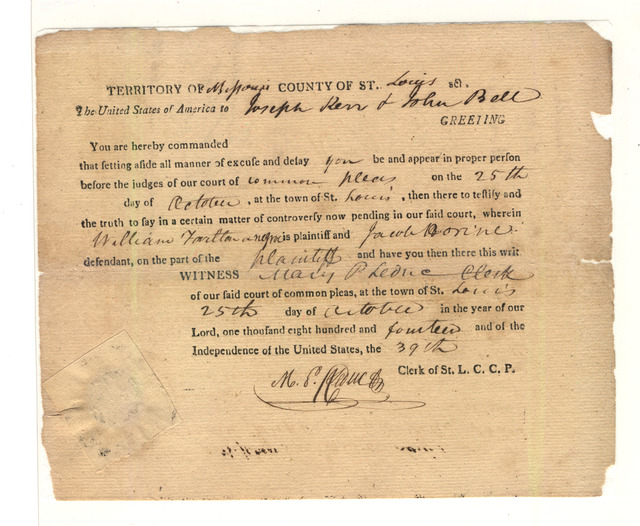 TERRITORY OF Missouri COUNTY OF ST. Louis sct.
The United States of America to Joseph Kerr & John Bell
GREETING
You are hereby commanded
that setting aside all manner of excuse and delay you be and appear in proper person
before the judges of our court of common pleas on the 25th
day of October, at the town of St. Louis, then there to testify and
the truth to say in a certain matter of controversy now pending in our said court, wherein
William is plaintiff and Jacob
defendant, on the part of the plaintiff and have you then there this writ
WITNESS Mary P Leduc Clerk
of our said court of common pleas, at the town of St. Louis
25th day of October in the year of our
Lord, one thousand eight hundred and fourteen and of the
Independence of the United States, the 39th
M. P. Leduc Clerk of St. L. C. C. P.